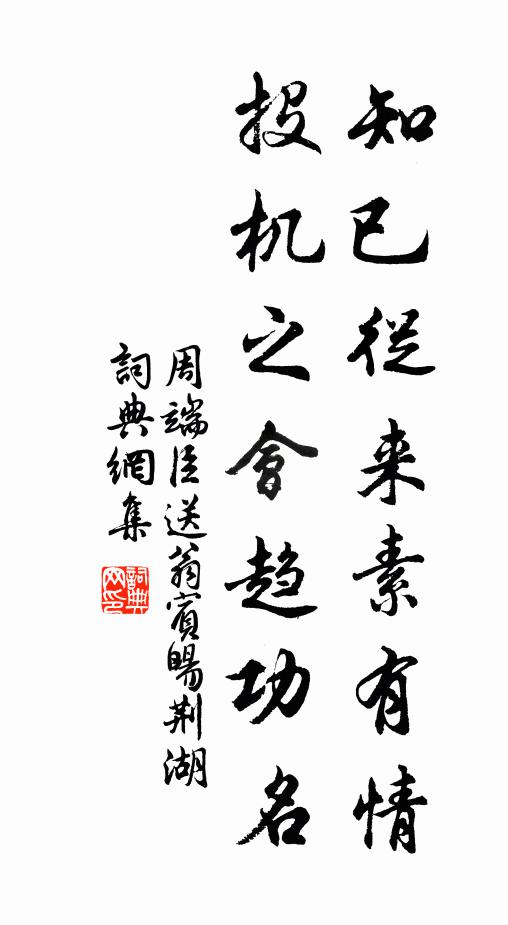 知已從来素有情
投机之會趋功名
周端臣送翁賓暘荆湖
詞典網集
詞典網印